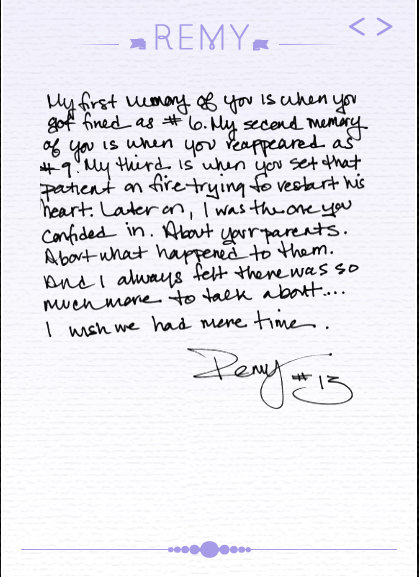 REMY
< >
My first memory of you is when you
got fired as #6. My second memory
of you is when you reappeared as
#9. My third is when you set that
patient on fire trying to restart his
heart. Later on, I was the one you
confided in. About your parents.
About what happened to them.
And I always felt there was so
much more to talk about....
I wish we had more time.
Remy #13